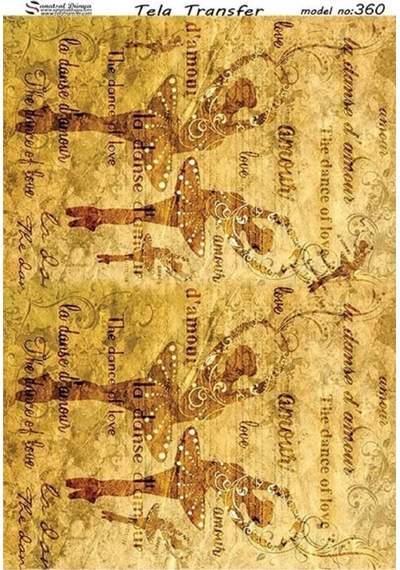 Sanatsal Dünya
Tela Transfer
model no:360
la danse d'amour
The dance of love
The dance of love
la danse d'amour
d'amour
love
amour
love
amour
The dance of love
la danse d'amour
amour
la da
The dan
la danse d'amour
The dance of love
The dance of love
la danse d'amour
d'amour
love
amour
love
amour
The dance of love
la danse d'amour
amour
la da
The dan